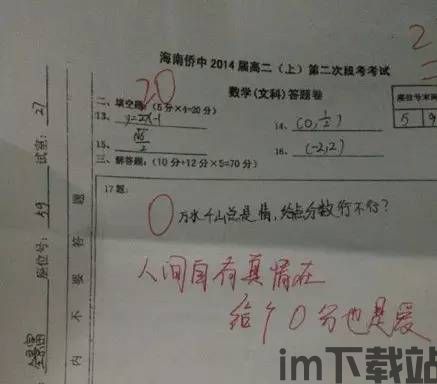 2
海南侨中2014届高二（上）第二次段考考试
数学(文科)答题卷
20
二、填空题：(5分×4=20分)
13、 y=2x-1
14、 (0,1/2)
15、 √5/2
16、 (-2,2)
三、解答题：(10分+12分×5=70分)
座位号末两
5 9
17题：
0 万水千山总是情，给点分数行不行？
人间自有真情在
给个0分也是爱
试室：27
座位号：59
内不要答题
im下载站